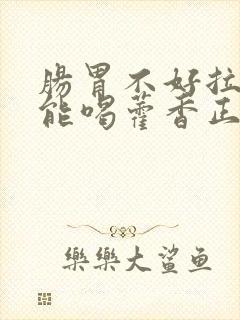 腸胃不好拉
能喝藿香正
樂樂大鯊鱼